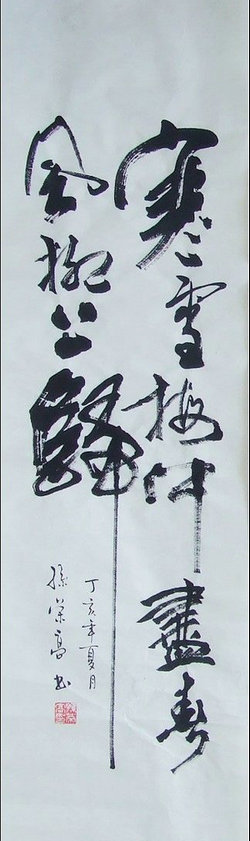 寒雪梅中盡春
風柳上歸
丁亥年夏月
孫榮高书